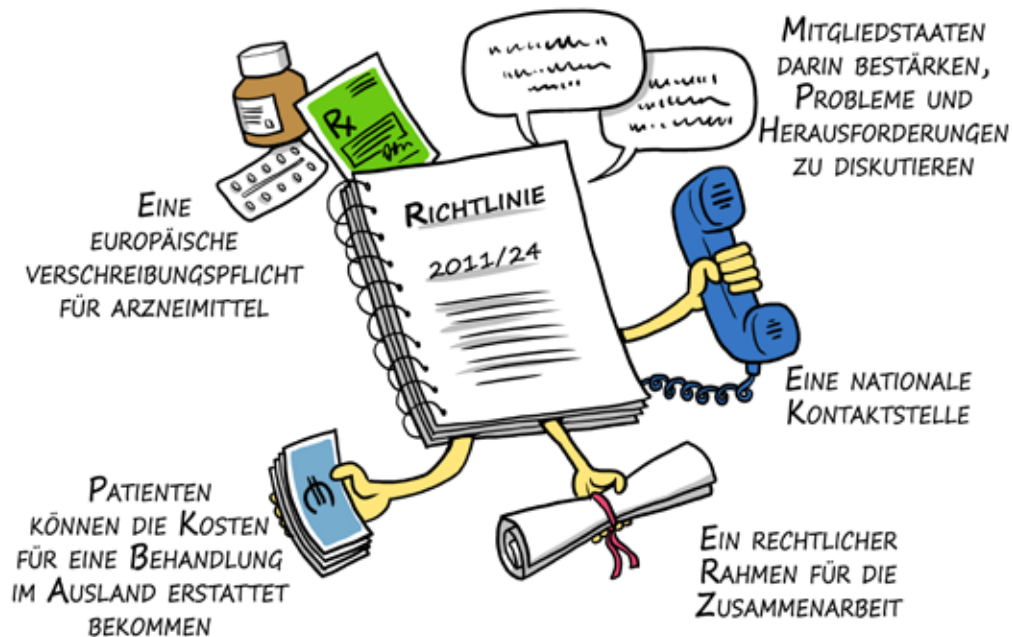 MITGLIEDSTAATEN
DARIN BESTÄRKEN,
PROBLEME UND
HERAUSFORDERUNGEN
ZU DISKUTIEREN
Rx
RICHTLINIE
2011/24
EINE
EUROPÄISCHE
VERSCHREIBUNGSPFLICHT
FÜR ARZNEIMITTEL
EINE NATIONALE
KONTAKTSTELLE
€
PATIENTEN
KÖNNEN DIE KOSTEN
FÜR EINE BEHANDLUNG
IM AUSLAND ERSTATTET
BEKOMMEN
EIN RECHTLICHER
RAHMEN FÜR DIE
ZUSAMMENARBEIT